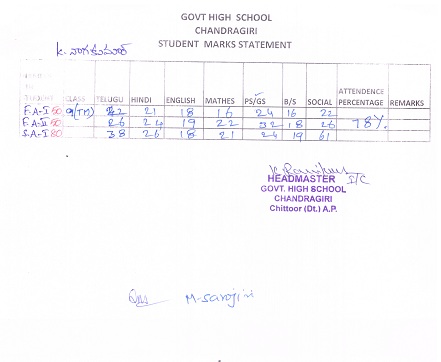 GOVT HIGH SCHOOL
CHANDRAGIRI
STUDENT MARKS STATEMENT
K. నాగకుమార్
STUDENT CLASS TELUGU HINDI ENGLISH MATHES PS/GS B/S SOCIAL ATTENDENCE PERCENTAGE REMARKS
F.A-I 50 9(TM) 22 21 18 16 24 16 22
F.A-II 50 26 24 19 22 32 18 26 78%
S.A-I 80 38 26 18 21 24 19 61
HEADMASTER I/C
GOVT. HIGH SCHOOL
CHANDRAGIRI
Chittoor (Dt.) A.P.
M-Sarojini